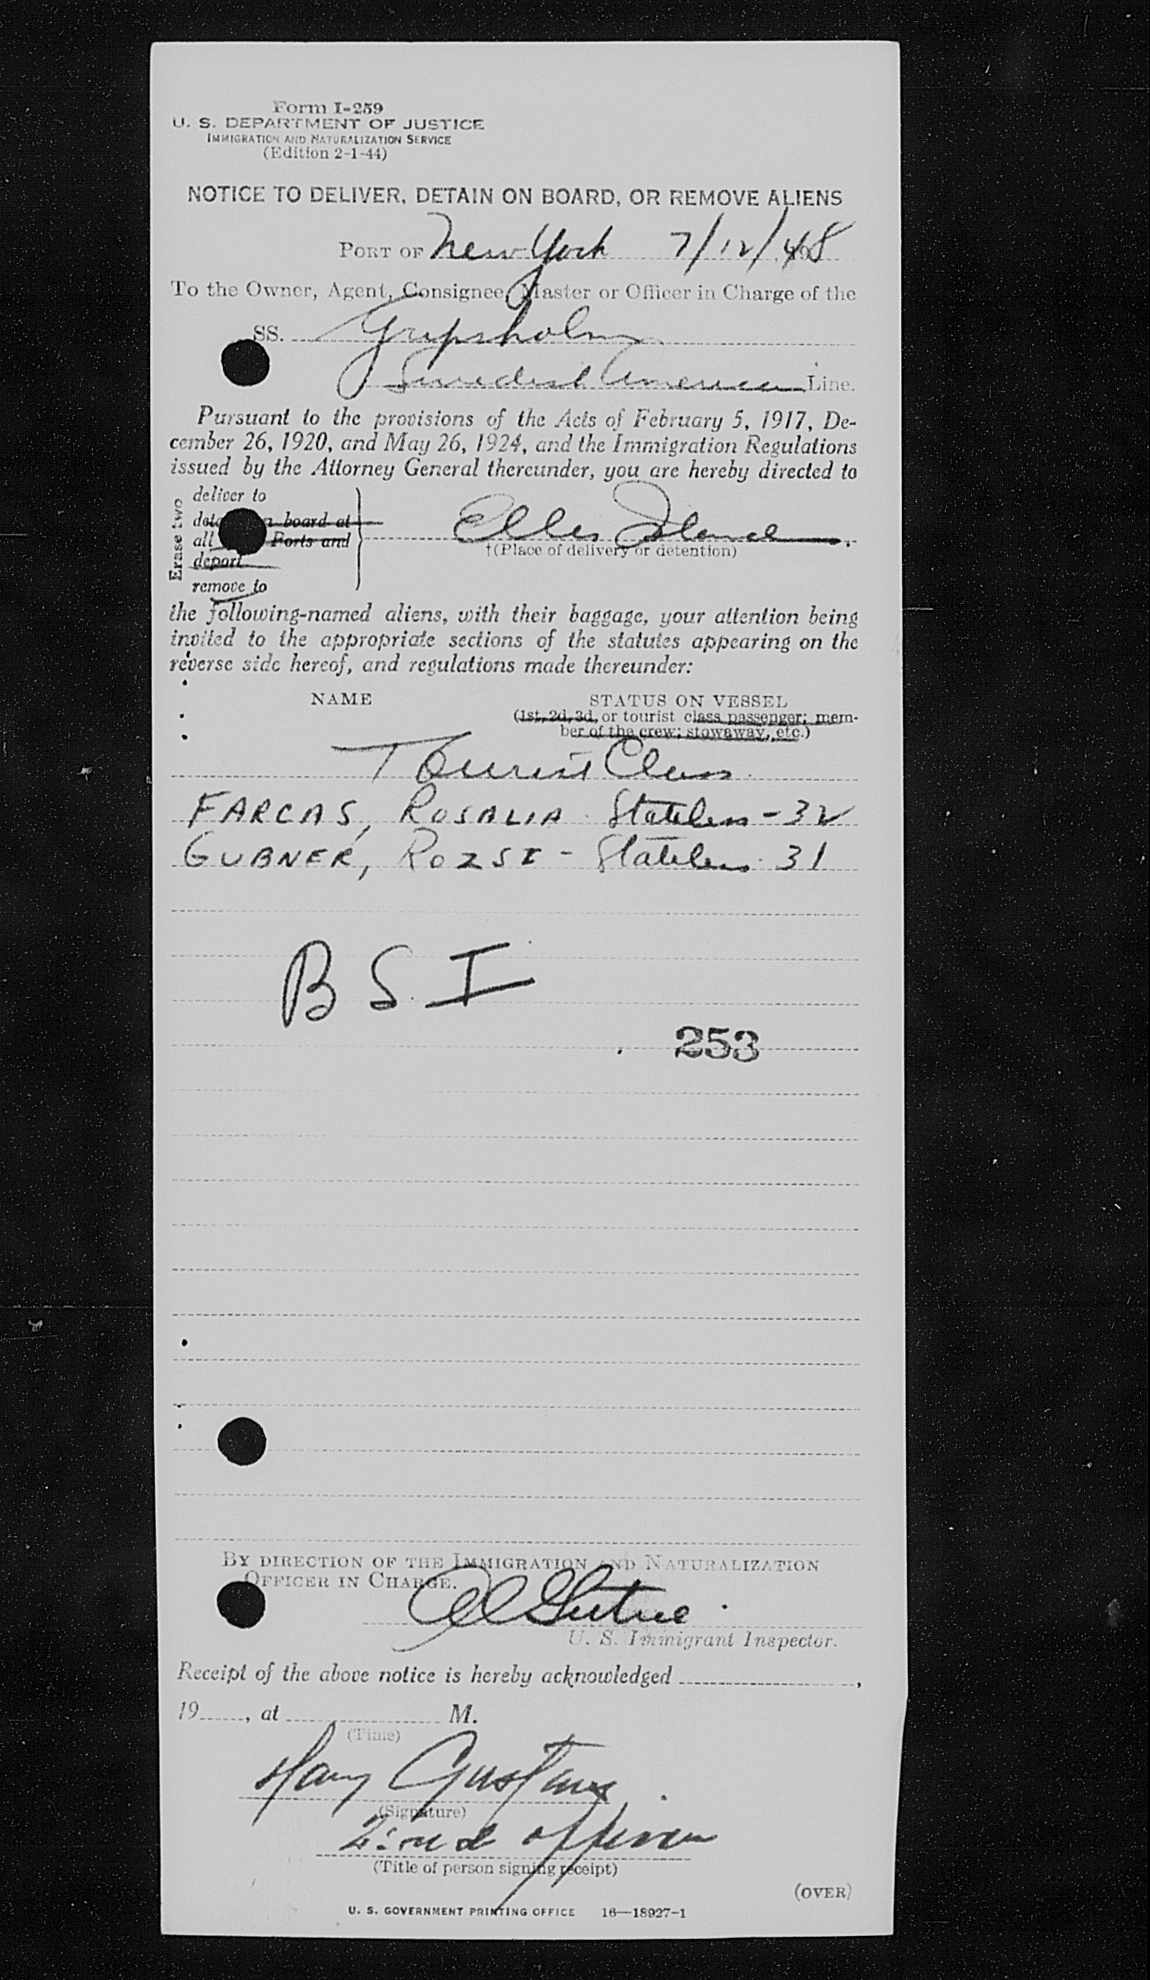 Form I-259
U. S. DEPARTMENT OF JUSTICE
IMMIGRATION AND NATURALIZATION SERVICE
(Edition 2-1-44)
NOTICE TO DELIVER, DETAIN ON BOARD, OR REMOVE ALIENS
PORT OF New York 7/12/48
To the Owner, Agent, Consignee, Master or Officer in Charge of the
SS. Gripsholm
Swedish American Line.
Pursuant to the provisions of the Acts of February 5, 1917, De-
cember 26, 1920, and May 26, 1924, and the Immigration Regulations
issued by the Attorney General thereunder, you are hereby directed to
Erase two
deliver to
board at
all Ports and
deport
remove to
Ellis Island
†(Place of delivery or detention)
the following-named aliens, with their baggage, your attention being
invited to the appropriate sections of the statutes appearing on the
reverse side hereof, and regulations made thereunder:
NAME STATUS ON VESSEL
(1st, 2d, 3d, or tourist class passenger; mem-
ber of the crew; stowaway, etc.)
Tourist Class
FARCAS, ROSALIA Stateless - 32
GUBNER, ROZSI - Stateless 31
B S I
253
BY DIRECTION OF THE IMMIGRATION AND NATURALIZATION
OFFICER IN CHARGE.
U. S. Immigrant Inspector.
Receipt of the above notice is hereby acknowledged ,
19 , at M.
(Time)
(Signature)
(Title of person signing receipt)
(OVER)
U. S. GOVERNMENT PRINTING OFFICE 16—18927-1